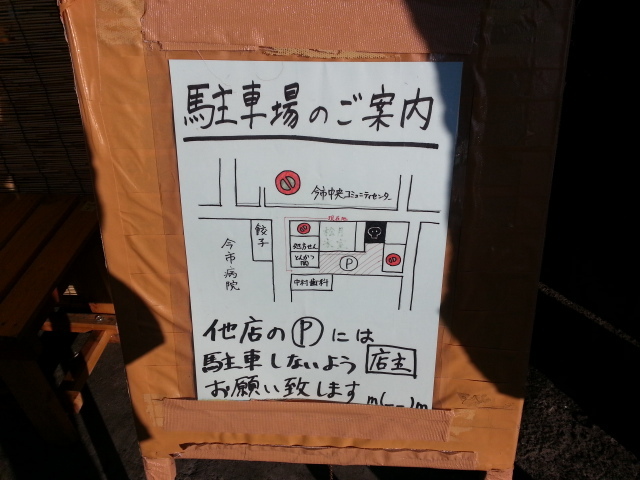 駐車場のご案内
今市中央コミュニティセンター
現在地
餃子
処方せん
とんかつ
P
今市病院
中村歯科
他店のPには
駐車しないよう 店主
お願い致します m(_ _)m